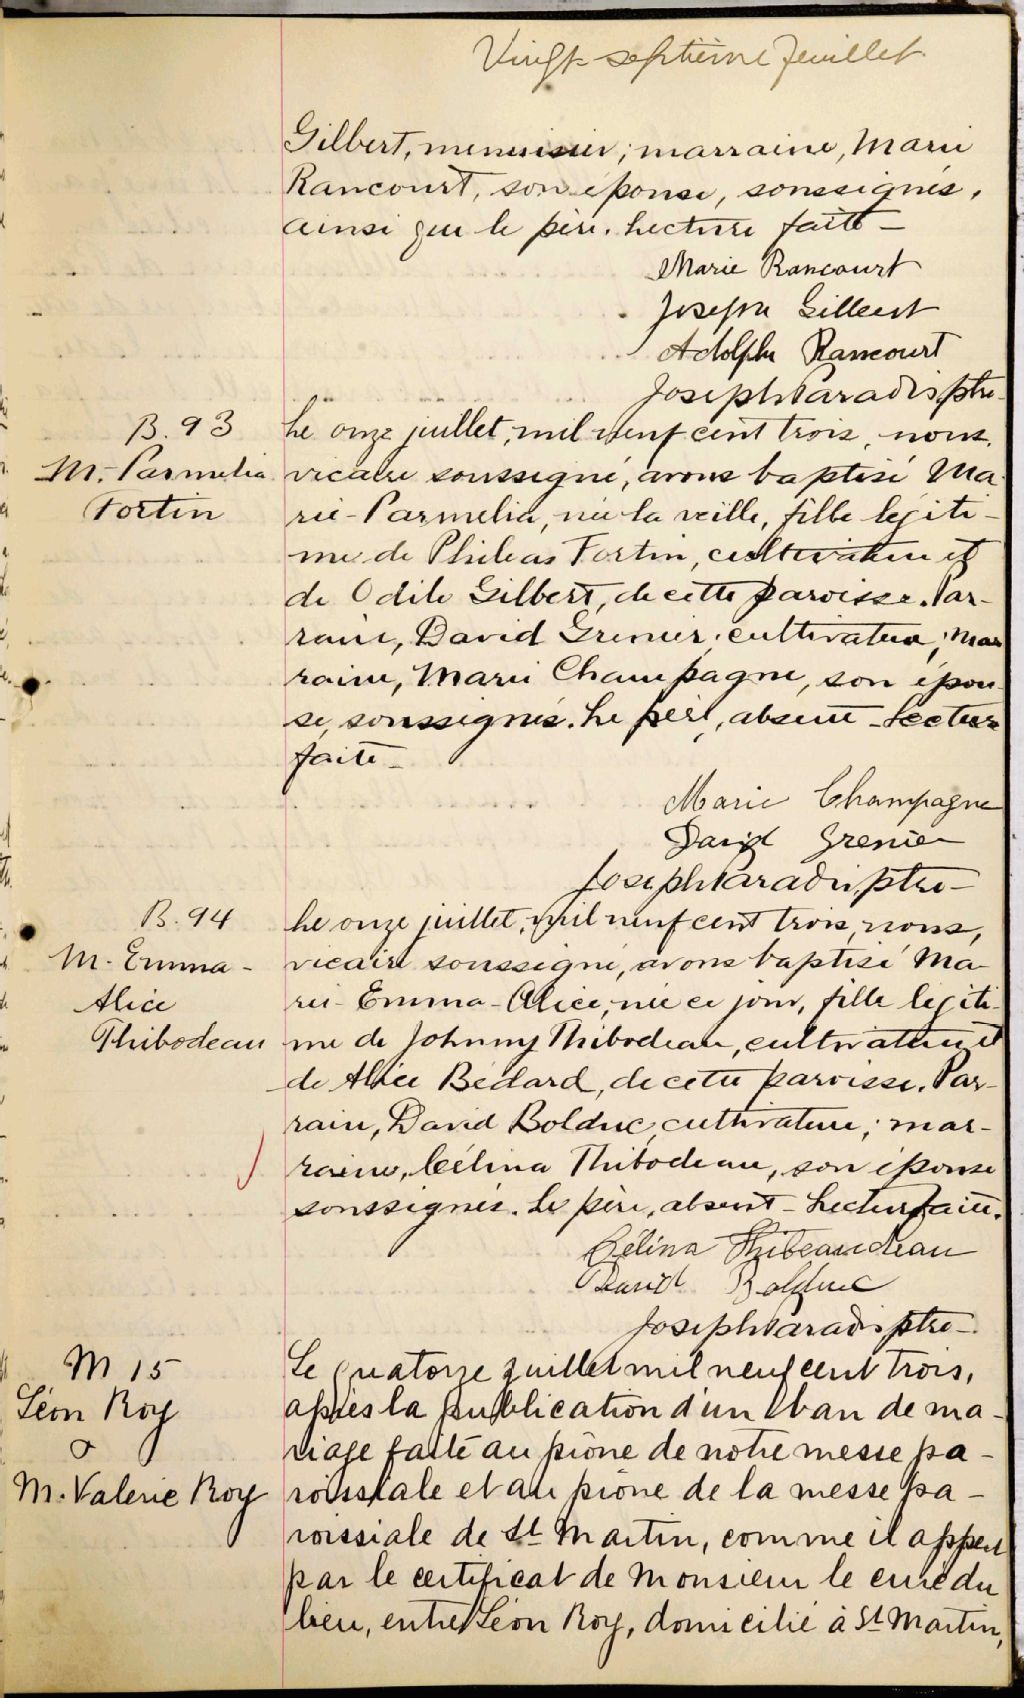 Vingt-septième feuillet
Gilbert, menuisier; marraine, Marie
Rancourt, son épouse, soussignés,
ainsi que le père. Lecture faite –
Marie Rancourt
Joseph Gilbert
Adolphe Rancourt
Joseph Paradis, ptre
B. 93
M.-Parmelia
Fortin
Le onze juillet, mil neuf cent trois, nous,
vicaire soussigné, avons baptisé Ma-
rie-Parmelia, née la veille, fille légiti-
me de Phileas Fortin, cultivateur et
de Odile Gilbert, de cette paroisse. Par-
rain, David Grenier, cultivateur; mar
raine, Marie Champagne, son épou-
se, soussignés. Le père, absent – Lecture
faite –
Marie Champagne
David Grenier
Joseph Paradis, ptre –
B. 94
M.-Emma-
Alice
Thibodeau
Le onze juillet, mil neuf cent trois, nous,
vicaire soussigné, avons baptisé Ma-
rie-Emma-Alice, née ce jour, fille légiti-
me de Johnny Thibodeau, cultivateur et
de Alice Bédard, de cette paroisse. Par-
rain, David Bolduc, cultivateur; mar-
raine, Célina Thibodeau, son épouse
soussignés. Le père, absent – Lecture faite.
Célina Thibeaudeau
David Bolduc
Joseph Paradis ptre –
M 15
Léon Roy
&
M. Valerie Roy
Le quatorze juillet mil neuf cent trois,
après la publication d'un ban de ma-
riage faite au prône de notre messe pa-
roissiale et au prône de la messe pa-
roissiale de St Martin, comme il appert
par le certificat de Monsieur le curé du
lieu, entre Léon Roy, domicilié à St Martin,